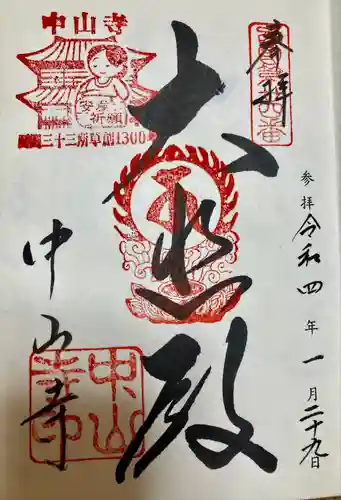 参拝 令和四年一月二十九日
奉拝
大悲殿
中山寺
安産
祈願
三十三所草創1300
中山寺
中山
寺印